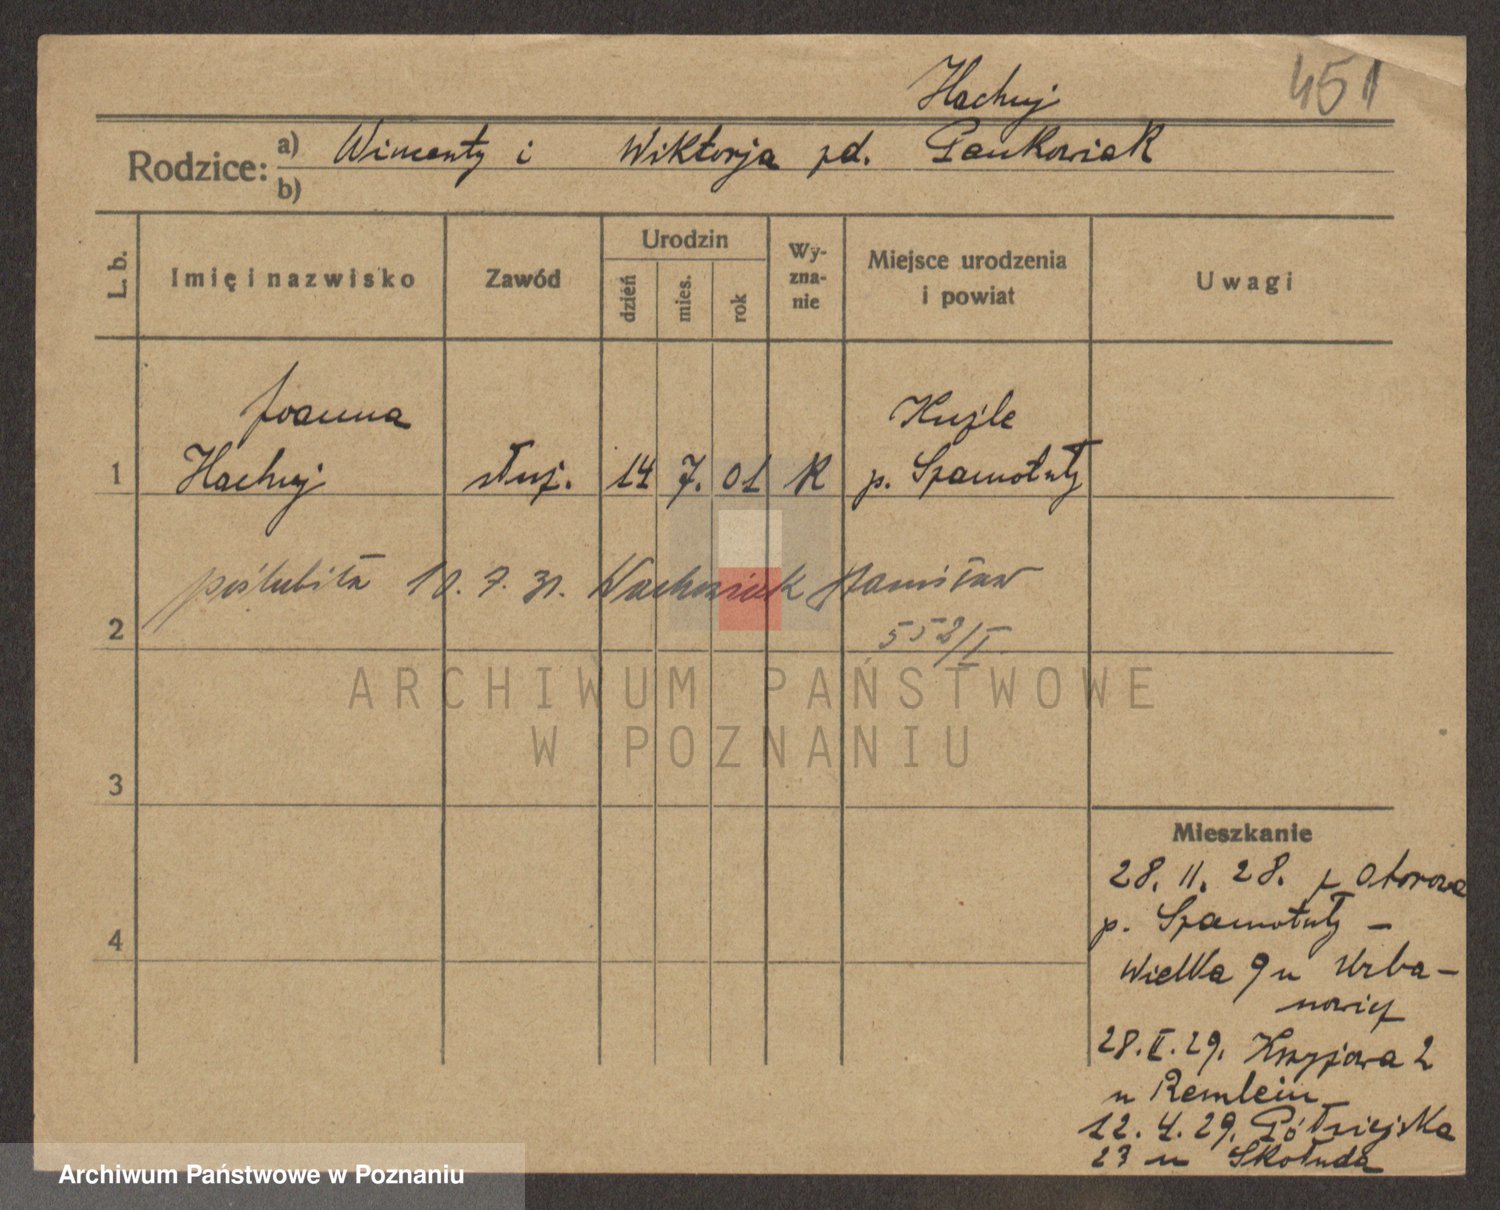 451
Hachuj
Rodzice: a) Wincenty i Wiktorja pd. Pankowiak
b)
L. b.
Imię i nazwisko
Zawód
Urodzin
dzień
mies.
rok
Wy-
zna-
nie
Miejsce urodzenia
i powiat
Uwagi
Joanna
Kuźle
1 Hachuj służ. 14 7. 01 R p. Szamotuły
poślubiła 10. 7. 31. Stanisław
2 558/I
ARCHIWUM PAŃSTWOWE
W POZNANIU
3
Mieszkanie
28. 11. 28. z Otorowa
4 p. Szamotuły –
Wielka 9 u Urba-
nowicz
28. II. 29. Krzyżowa 2
u Remlein
12. 4. 29. Półwiejska
23 u Skołuda
Archiwum Państwowe w Poznaniu